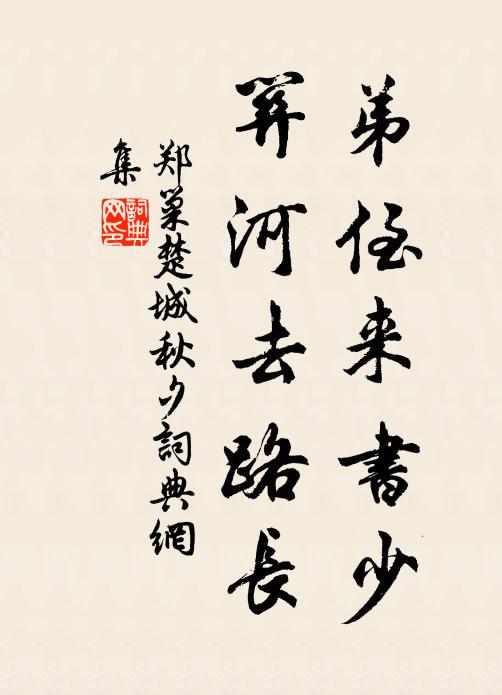 弟侄来書少
關河去路長
郑巢楚城秋夕詞典網
集
詞典网印